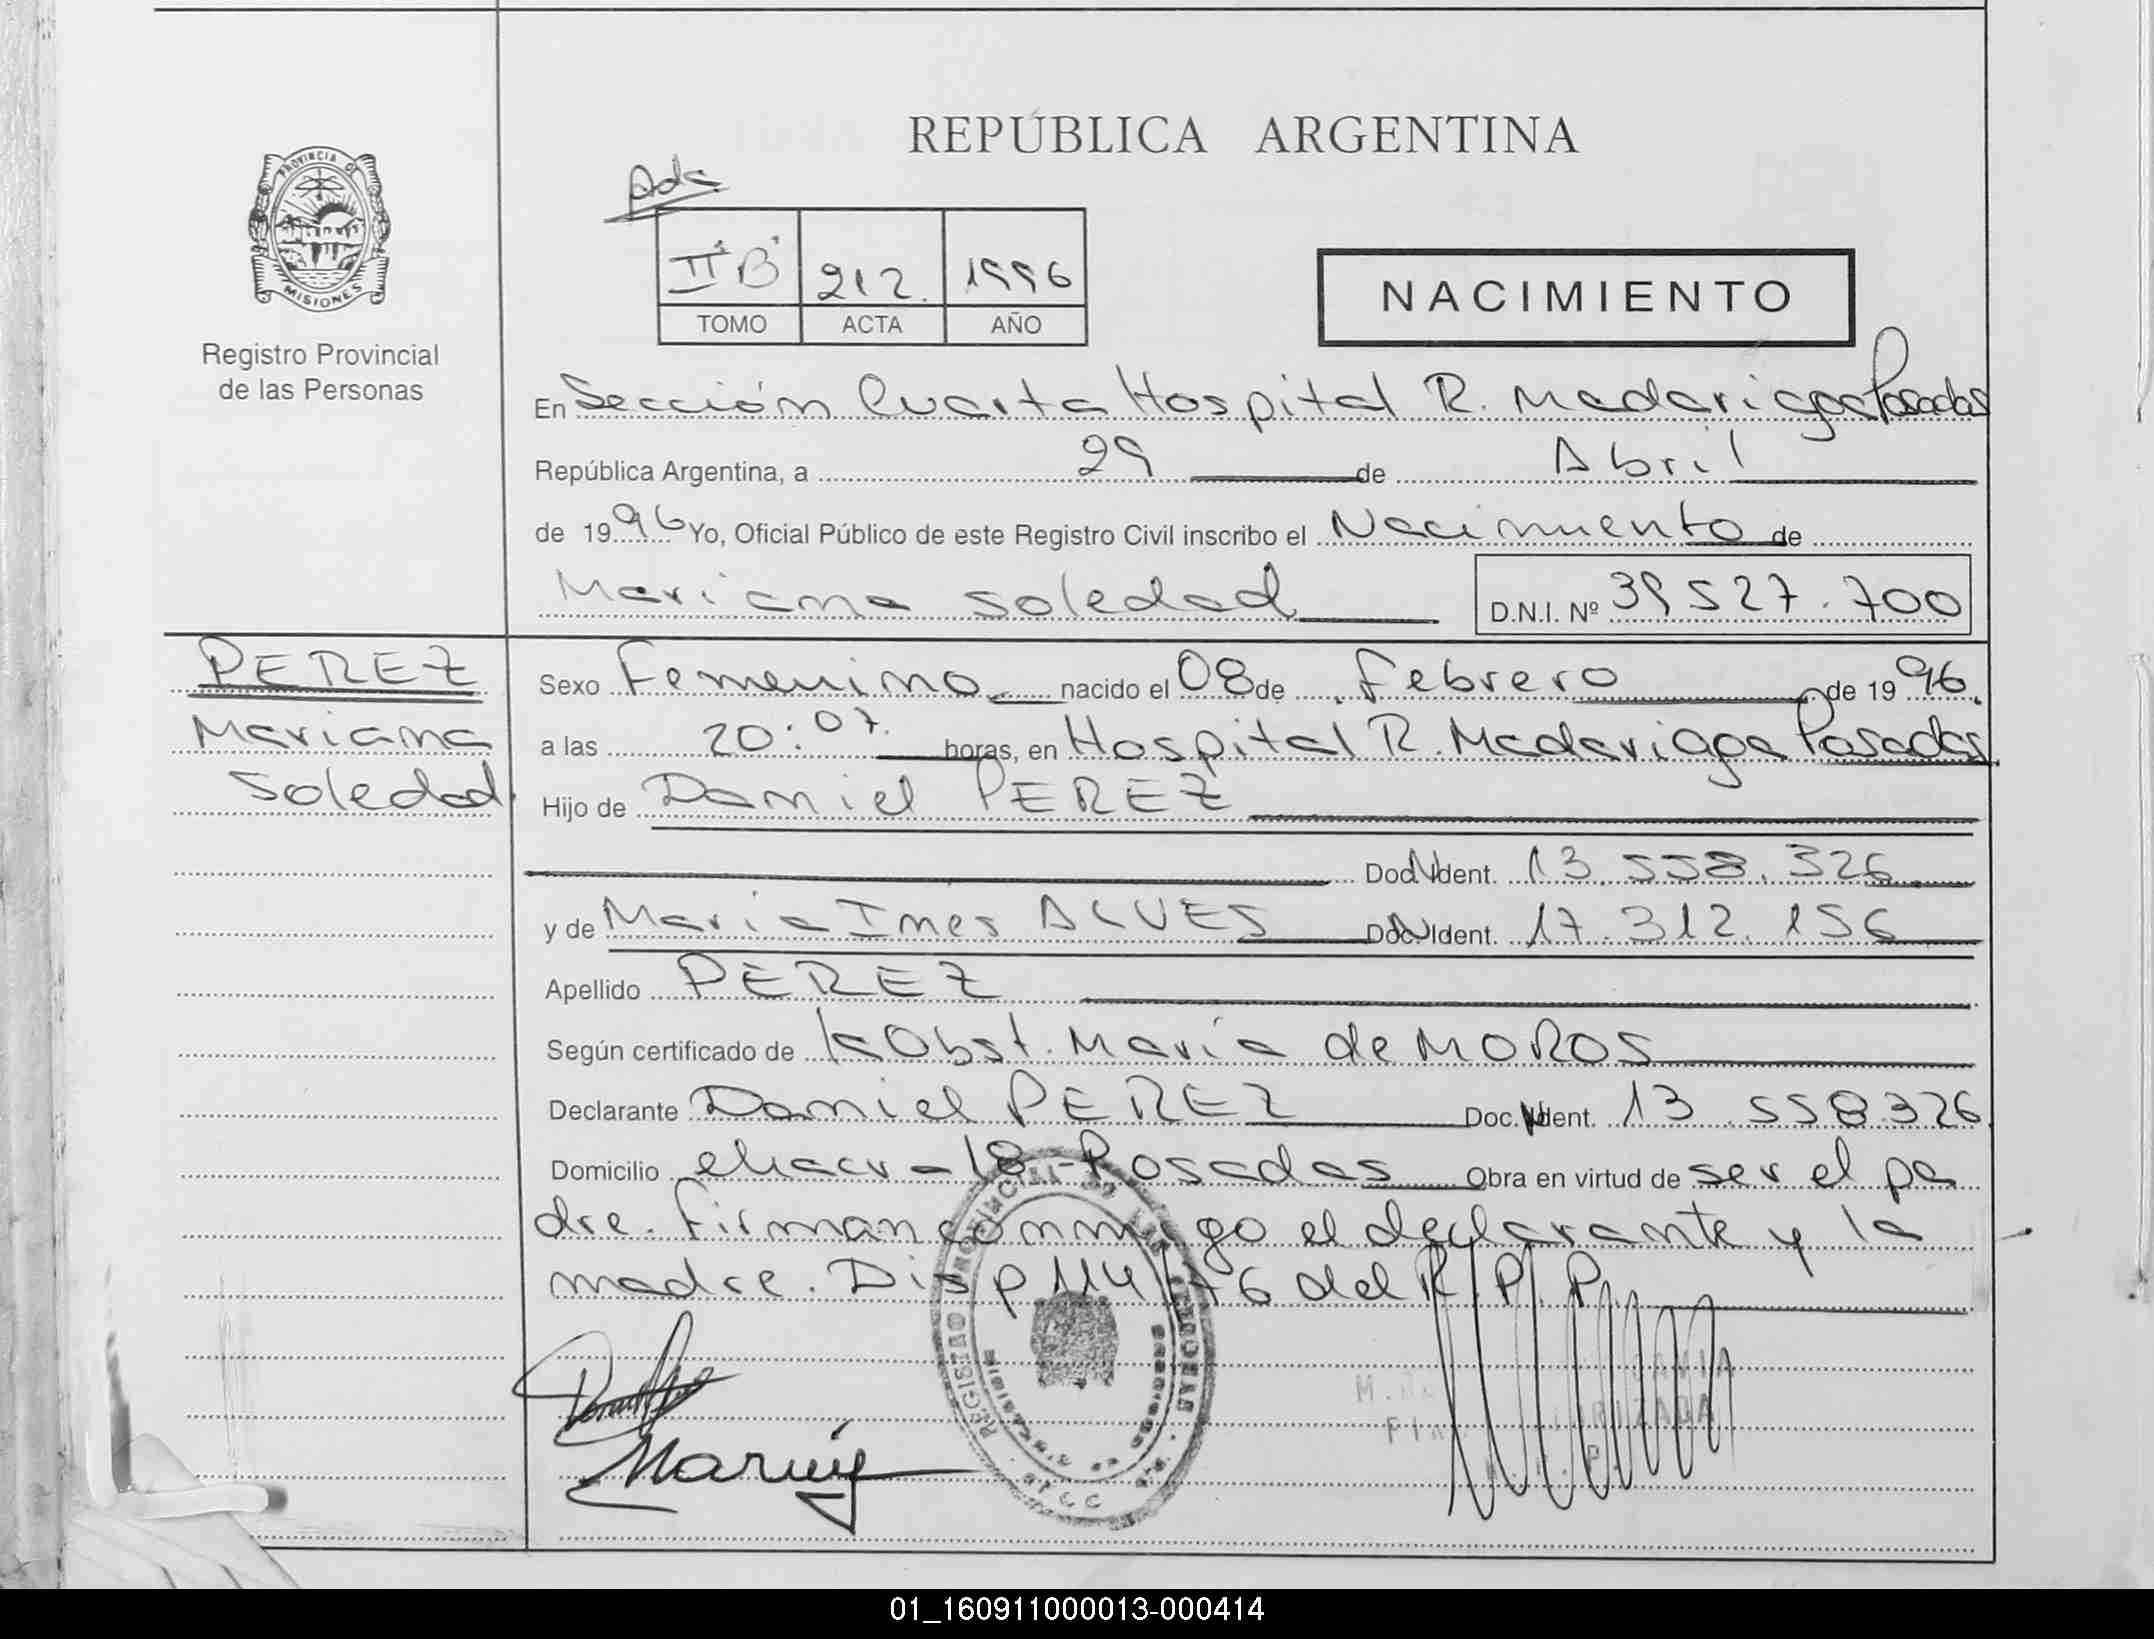 REPÚBLICA ARGENTINA
PROVINCIA DE
MISIONES
Registro Provincial
de las Personas
II "B" 212. 1996
TOMO ACTA AÑO
NACIMIENTO
En Sección Cuarta Hospital R. Madariaga Posadas
República Argentina, a 29 de Abril
de 1996 Yo, Oficial Público de este Registro Civil inscribo el Nacimiento de
Mariana Soledad D.N.I. Nº 39527.700
PEREZ
Mariana
Soledad
Sexo Femenino nacido el 08 de Febrero de 1996.
a las 20:07. horas, en Hospital R. Madariaga Posadas
Hijo de Daniel PEREZ
Doc. Ident. 13.558.326
y de Maria Ines ALVES Doc. Ident. 17.312.156
Apellido PEREZ
Según certificado de la Obst. María de MOROS
Declarante Daniel PEREZ Doc. Ident. 13.558.326
Domicilio -18-Posadas Obra en virtud de ser el pa
dre. Firman conmigo el declarante y la
madre. Disp 114/76 del R.P.P.
REGISTRO PROVINCIAL DE LAS PERSONAS
01_160911000013-000414